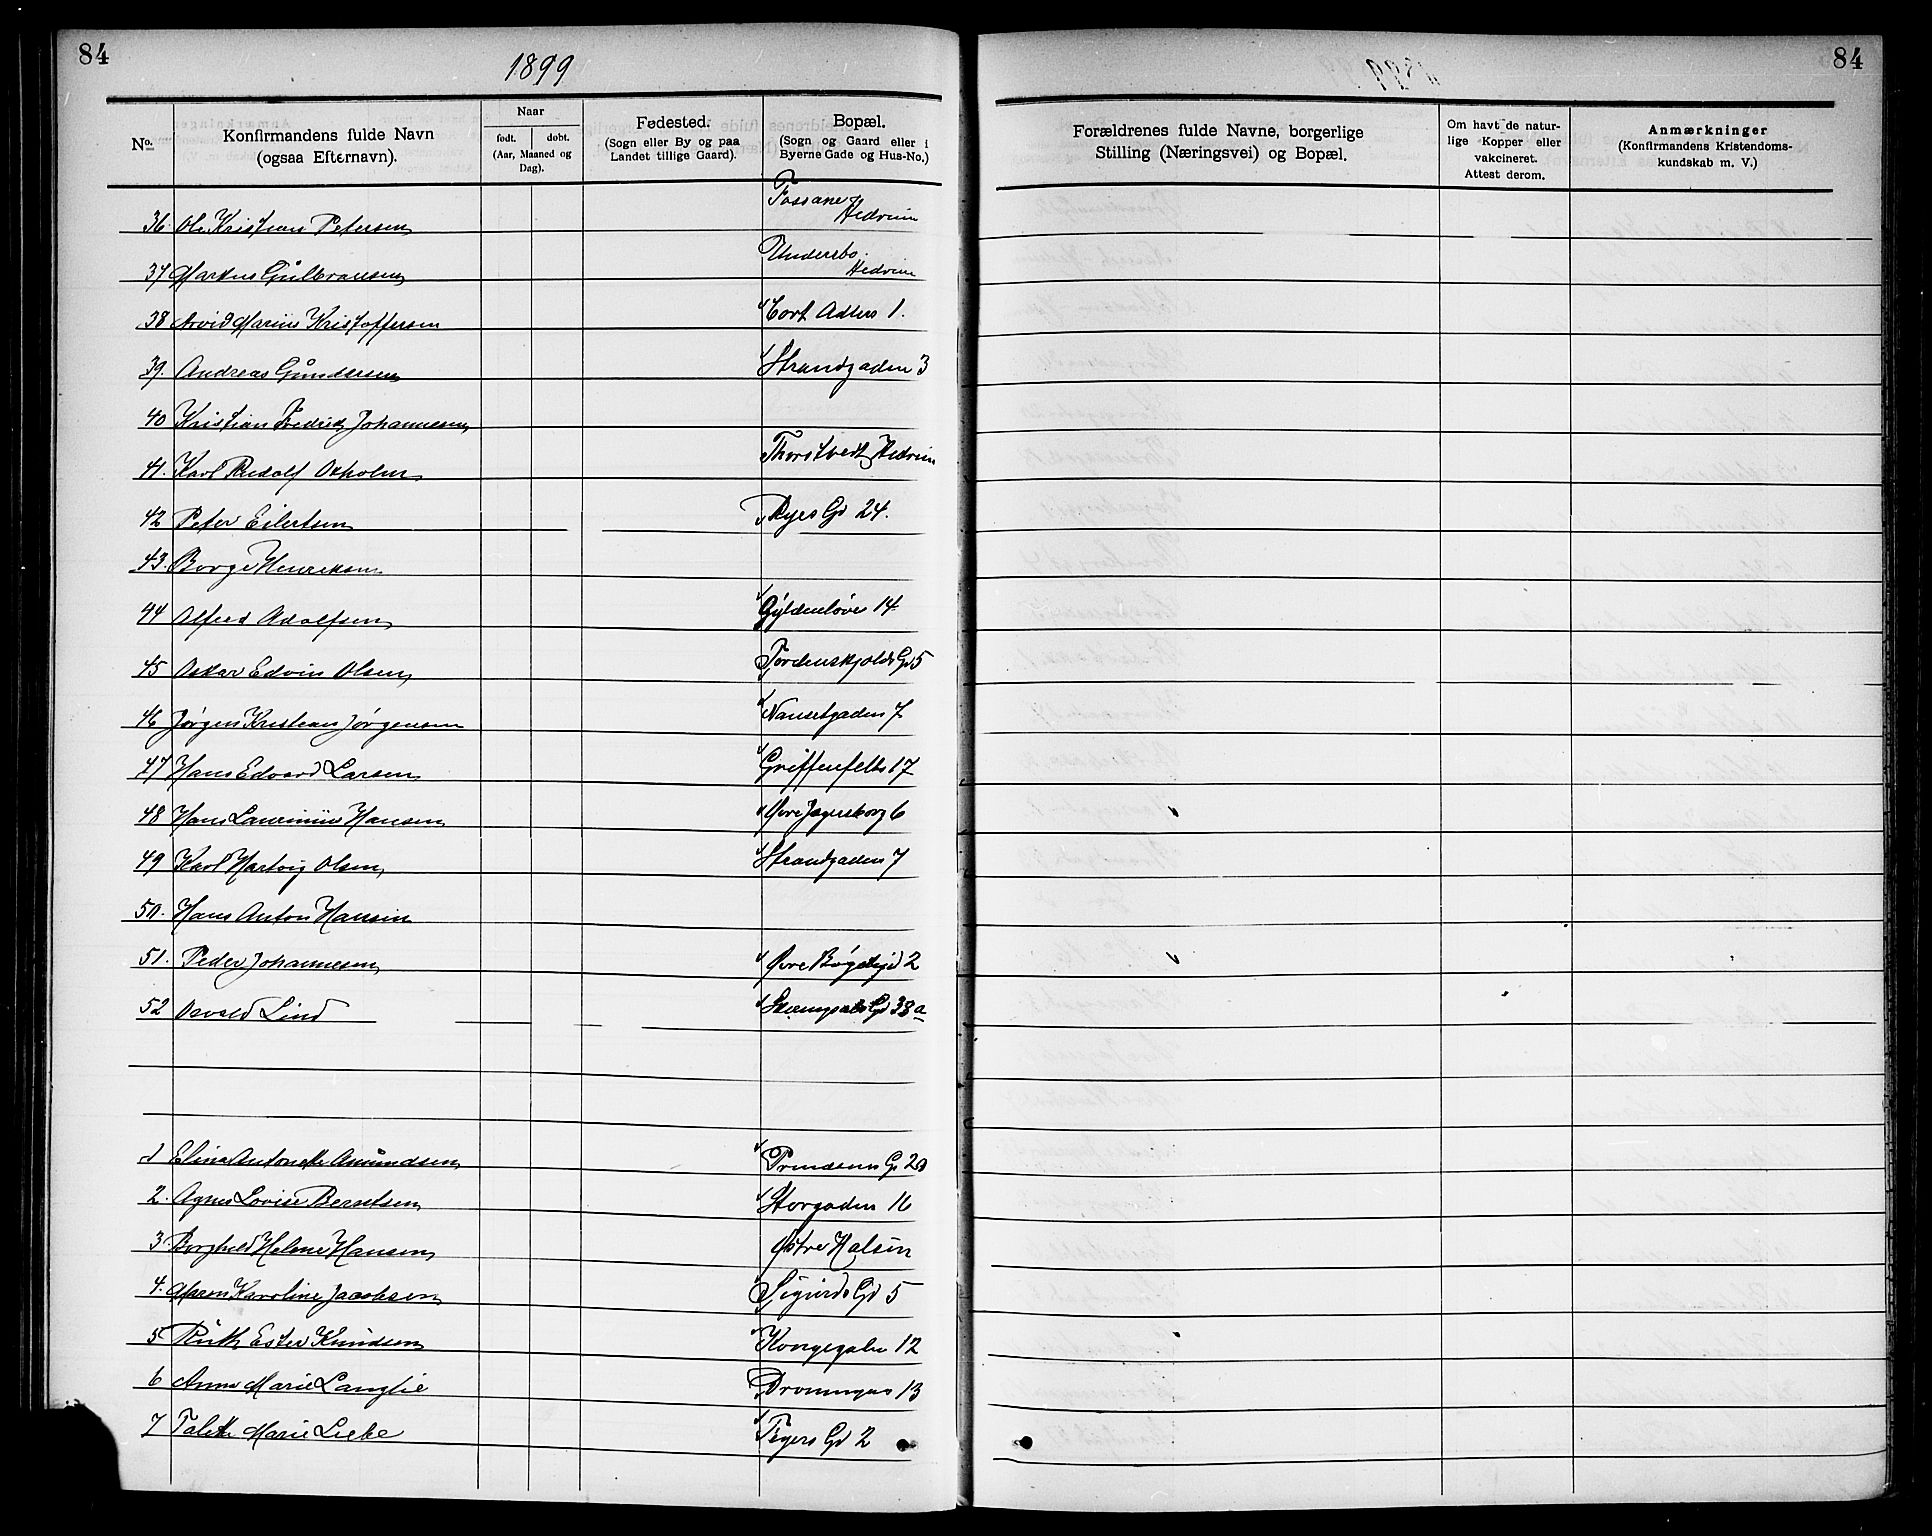 84
1899
No.
Konfirmandens fulde Navn
(ogsaa Efternavn).
Naar
født. døbt.
(Aar, Maaned og
Dag).
Fødested.
(Sogn eller By og paa
Landet tillige Gaard).
Bopæl.
(Sogn og Gaard eller i
Byerne Gade og Hus-No.)
36. Ole Kristian Petersen Fossane Hedrum
37 Markus Gulbransen Undersbo Hedrum
38 Arvid Marius Kristoffersen Cort Adlers 1.
39. Andreas Gundersen Strandgaden 3
40 Kristian Fredrik Johannesen
41. Karl Rudolf Oxholm Thorstvedt Hedrum
42 Peter Eilertsen Ryes Gd 24.
43. Borge Henriksen
44 Alfred Adolfsen Gyldenløves 14
45 Oskar Edvin Olsen Tordenskjolds Gd 5
46 Jørgen Kristian Jørgensen Nansetgaden 7
47 Hans Edvard Larsen Griffenfelts 17
48 Hans Laurinius Hansen Øvre Jegersborg 6
49 Karl Hartvig Olsen Strandgaden 7
50. Hans Anton Hansen
51. Peder Johannesen Øvre Bøgelyd 2
52 Osvald Lind Gd 38a
1 Elina Antonette Amundsen Gd
2. Agnes Lovise Berntsen Storgaden 16
3. Borghild Helene Hansen Østre Halsen
4. Maren Karoline Jacobsen Sigurds Gd 5
5 Ruth Ester Knudsen Kongegaden 12
6 Anna Marie Langlie Droningens 13
7 Talette Marie Lieke Gd 2
84
Forældrenes fulde Navne, borgerlige
Stilling (Næringsvei) og Bopæl.
Om havt de natur-
lige Kopper eller
vakcineret.
Attest derom.
Anmærkninger
(Konfirmandens Kristendoms-
kundskab m. V.)